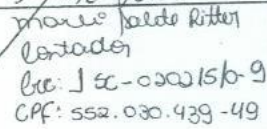 Marli Salde Ritter
Contador
Crc: 1 SC-020215/0-9
CPF: 552.030.439-49